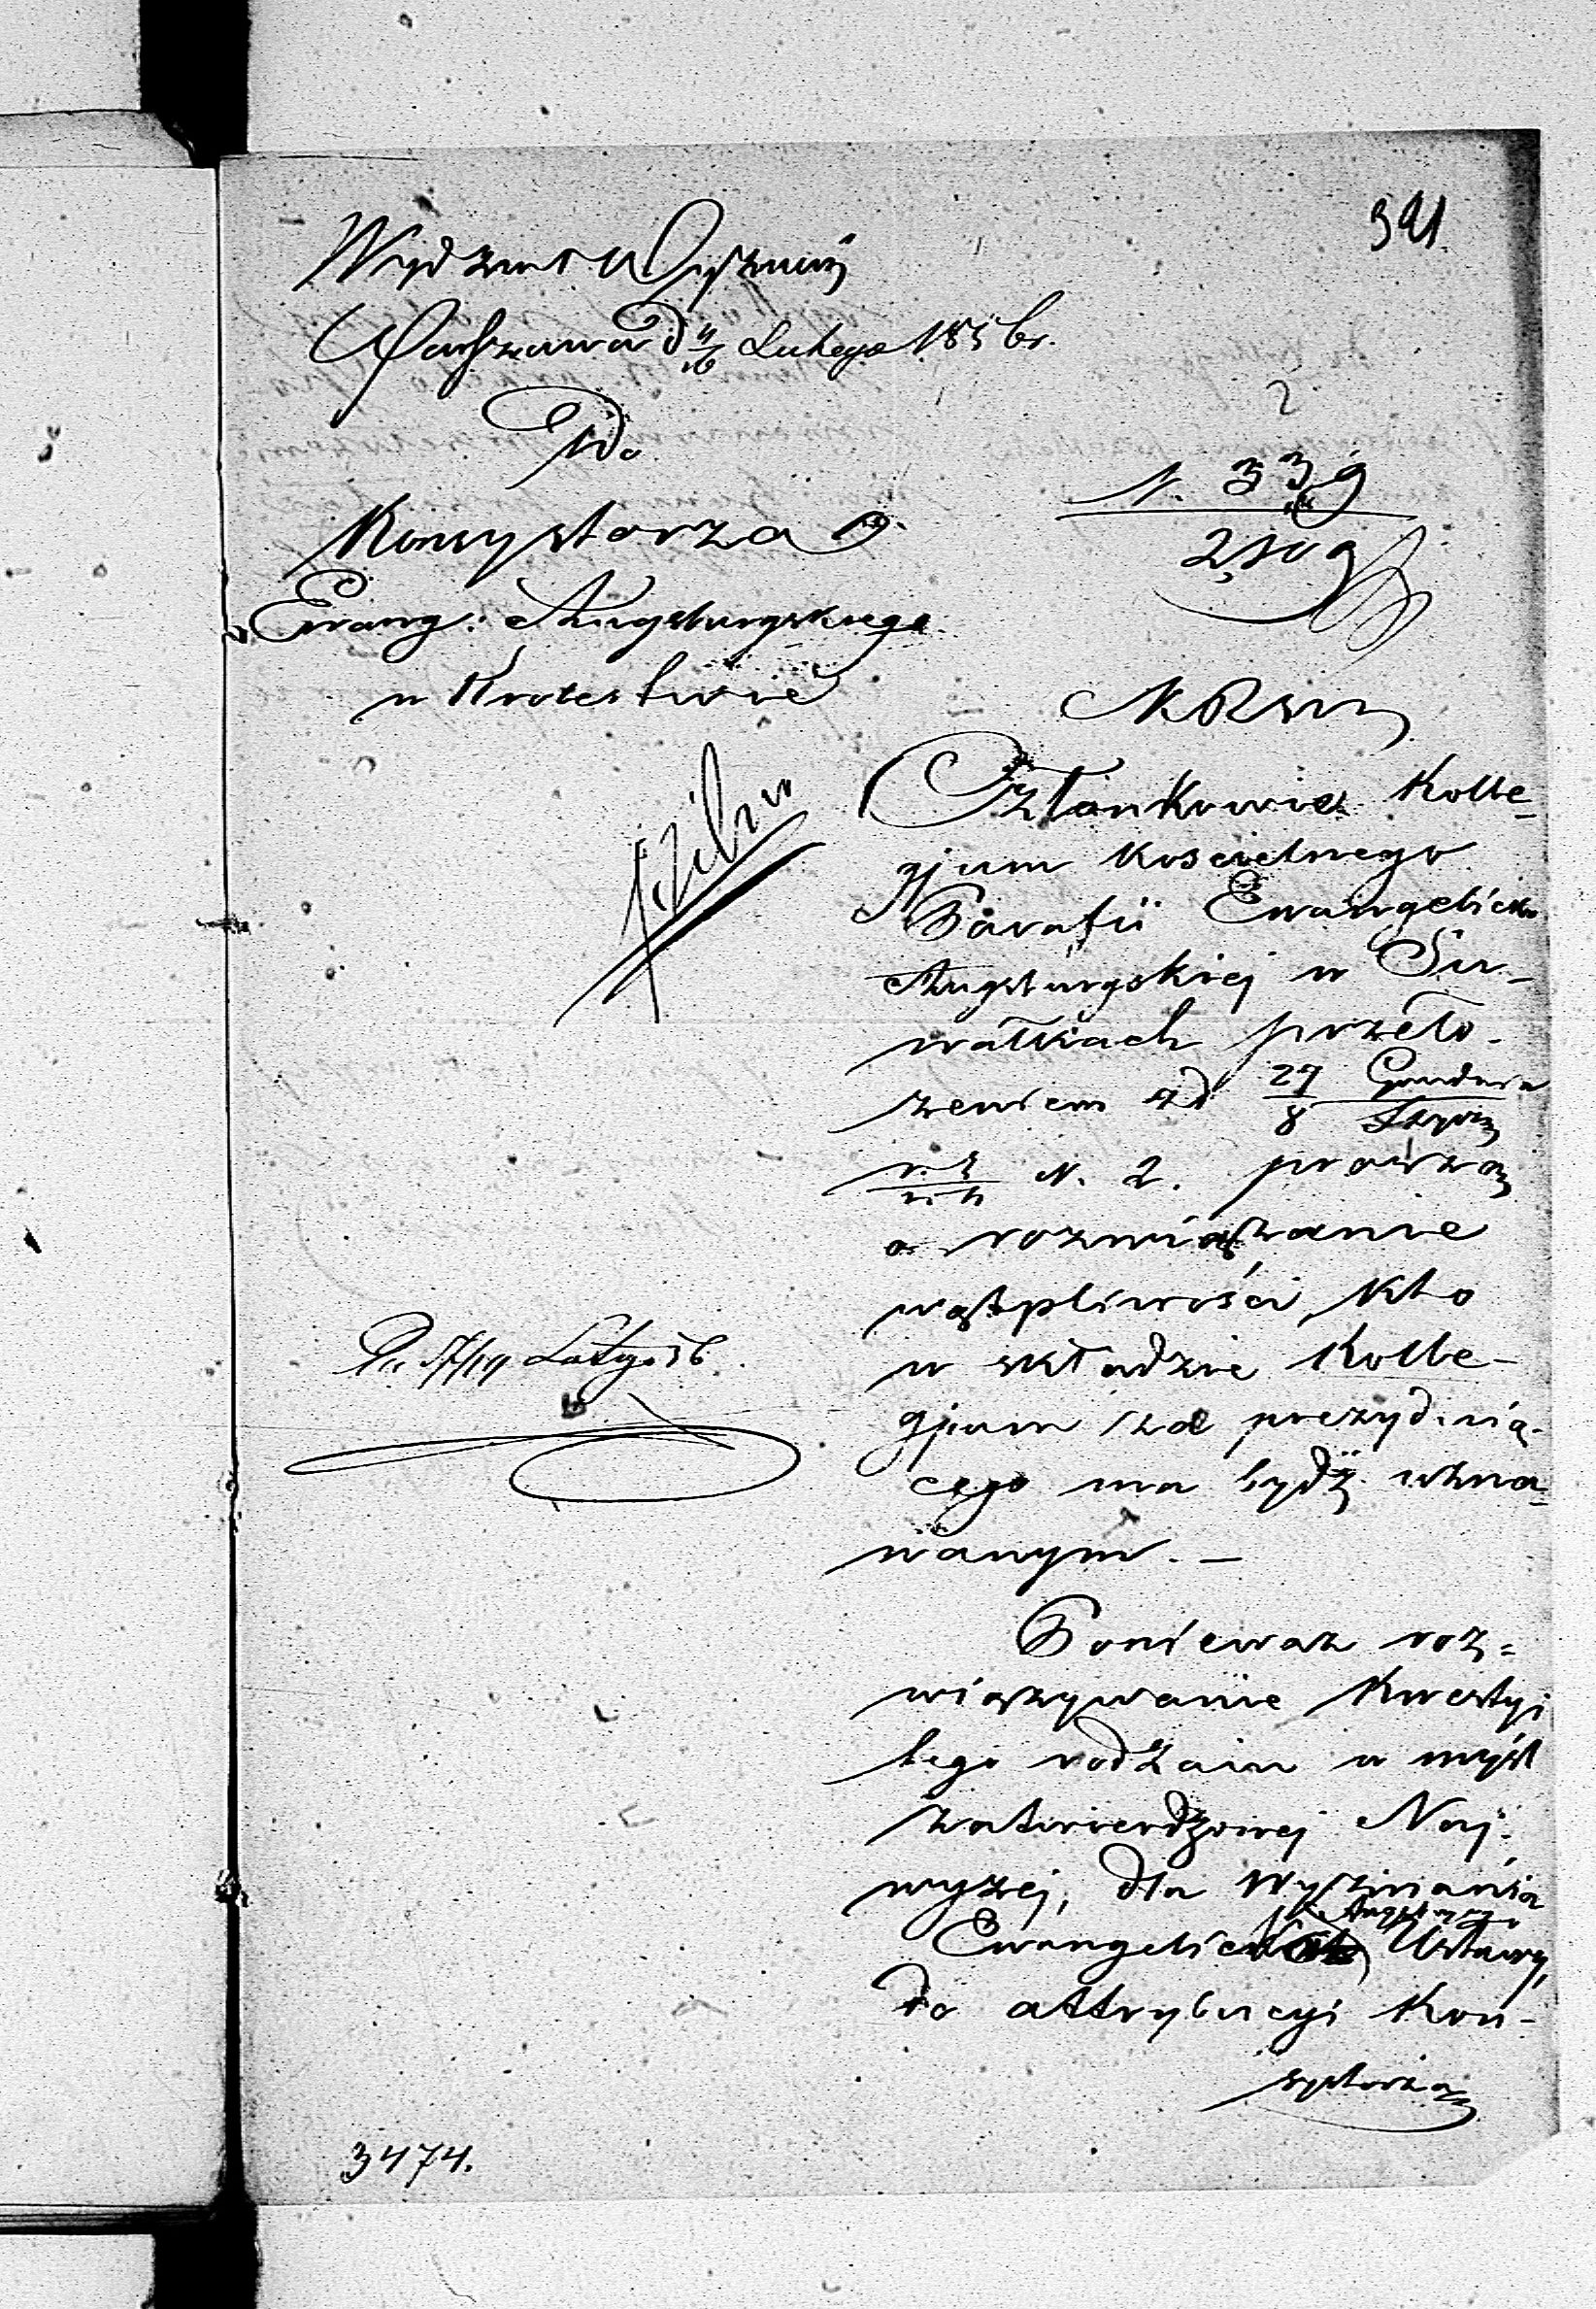 391
Wydział Wyznań
Warszawa d 4/16 Lutego 1856 r.
Do
Konsystorza
Ewang: Augsburgskiego
w Krolestwie
N. 339
2,109
K R S W
Członkowie Kolle-
gjum Koscielnego
Parafii Ewangelicko
Augsburgskiej w Su-
wałkach przeło-
żeniem z d 27 Grudnia
8 Stycz
N. 2. proszą
o rozwiązanie
wątpliwości, Kto
w składzie Kolle-
gjum za prezydują-
cego ma bydź uzna-
wanym. —
Poniewaz roz-
wiązywanie Kwestyi
tego rodzaiu w myśl
zatwierdzonej Naj-
wyzej, dla Wyznania
Augsburgo
Ewangelicko Ustawy,
do attrybucyi Kon-
systorza
17/19 Lutego 56.
3474.